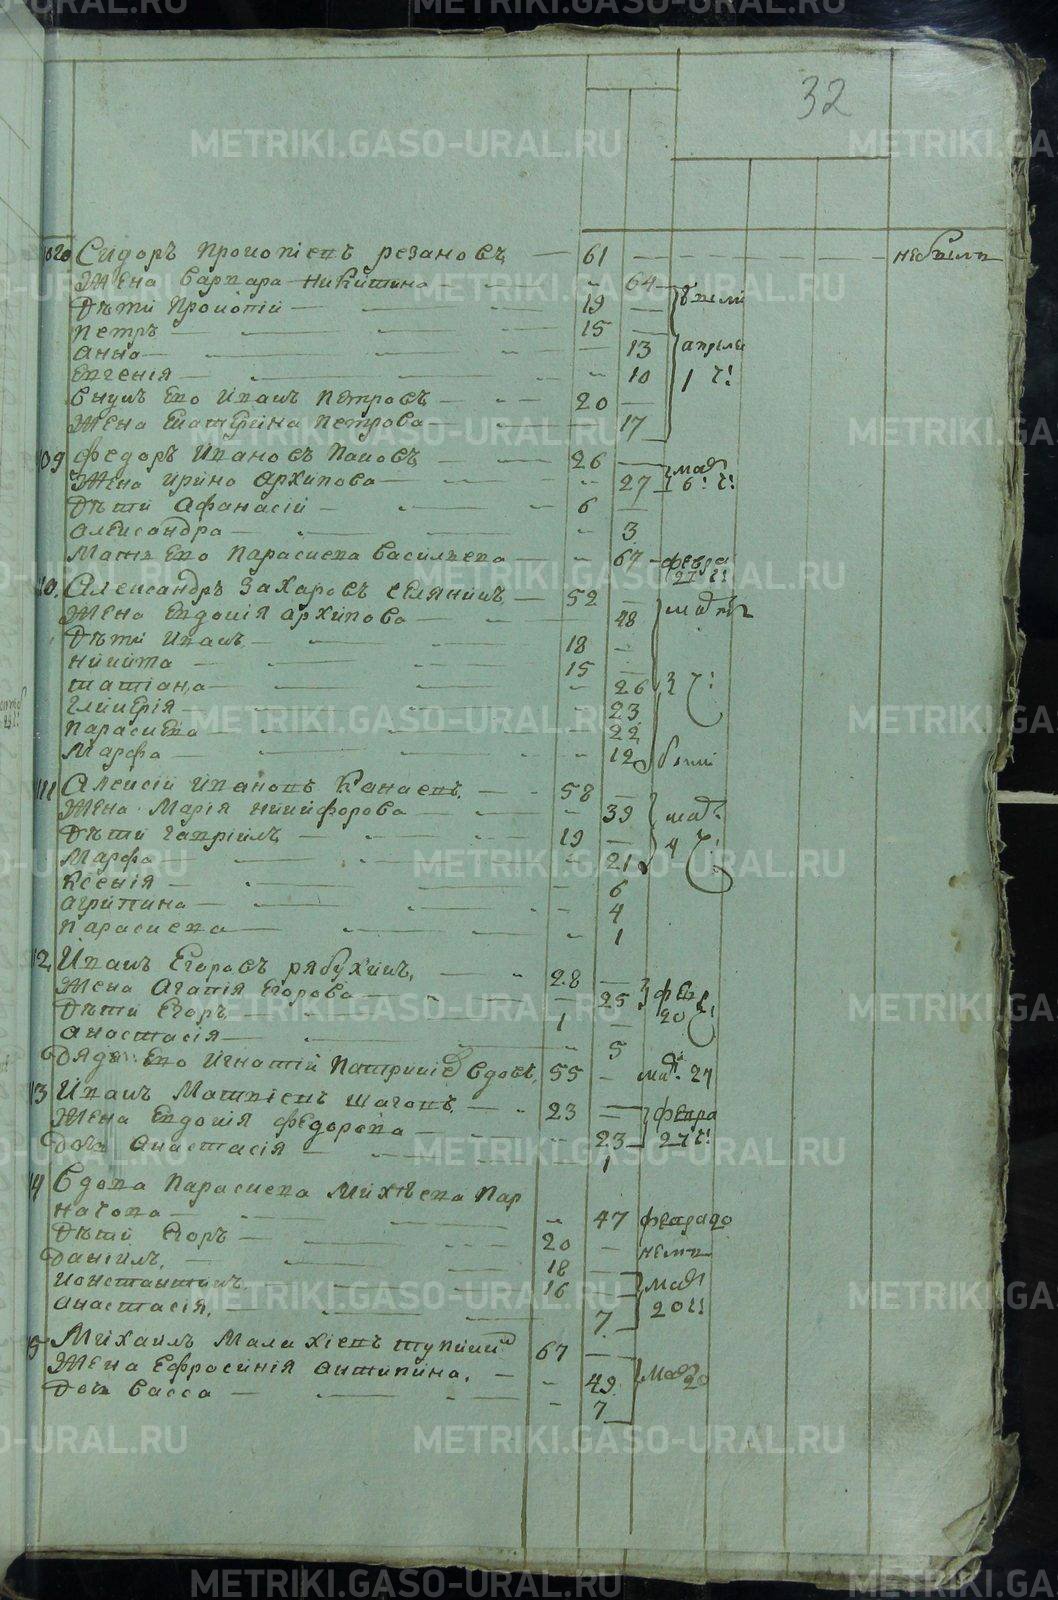 32
Сидоръ Прокопіевъ резановъ — 61 небыли
Жена Варвара Никитина — 64
Дѣти Прокопій — 19 были
Петръ — 15
Анна — 13 апреля
Евгенія — 10 1 ч:
Внукъ Его Иванъ Петровъ — 20
Жена Екатерина Петрова — 17
109 Федоръ Ивановъ Поповъ — 26
Жена Ирина Архипова — 27 6: ч:
Дѣти Афанасій — 6
Александра — 3
Мать Его Парасковья Васильева — 67 февра
27 ч:
10. Александръ Захаровъ селянинъ — 52
Жена Евдокія Архипова — 48
Дѣти Иванъ — 18
Никита — 15
Татіана — 26 3 ч:
Гликерія — 23
Парасковья — 22
Марфа — 12 были
111 Алексій Ивановъ Канаевъ — 58
Жена Марія Никифорова — 39
Дѣти Гавріилъ — 19 4 ч:
Марфа — 21
Ксенія — 6
Агрипина — 4
Парасковья — 1
12 Иванъ Егоровъ рябухинъ — 28
Жена Агапія Егорова — 25 февр
Дѣти Егоръ — 1 20 ч:
Анастасія — 5
Дядя Его Игнатій вдовъ, 55
13 Иванъ Матвіевъ шаговъ — 23 февра
Жена Евдокія Федорова — 23 27 ч:
Дочь Анастасія — 1
14 Вдова Парасковья
— 47 февра 20
Дѣти Егоръ — 20
Даніилъ — 18
Константинъ — 16
Анастасія — 7 20 ч:
15 Михаилъ Малахіевъ 67
Жена Ефросинія Антипина — 49 20
Дочь Васса — 7
METRIKI.GASO-URAL.RU